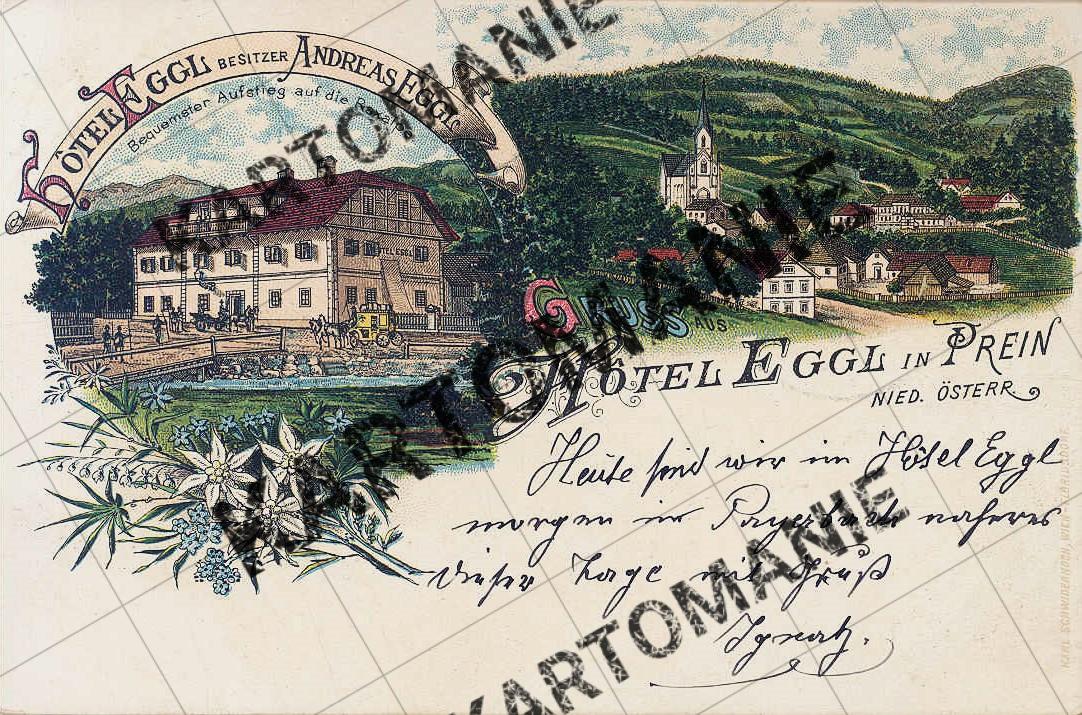 HÔTEL EGGL BESITZER ANDREAS EGGL
Bequemster Aufstieg auf die Raxalpe
H. EGGL
GRUSS AUS
HÔTEL EGGL IN PREIN
NIED. ÖSTERR.
Heute sind wir im Hôtel Eggl
morgen in Payerbach näheres
dieser Tage mit Gruß
Ignatz.
KARL SCHWIDERNOCH, WIEN-
KARTOMANIE
KARTOMANIE
KARTOMANIE
KARTOMANIE